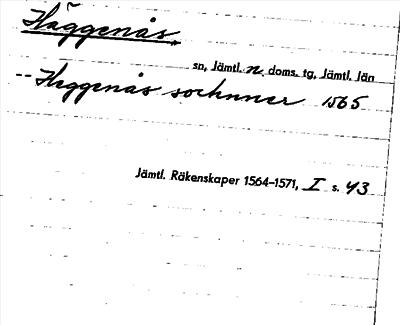 Häggenås.
sn, Jämtl. n. doms. tg, Jämtl. län
-- Heggenås sochnner 1565
Jämtl. Räkenskaper 1564–1571, I s. 43